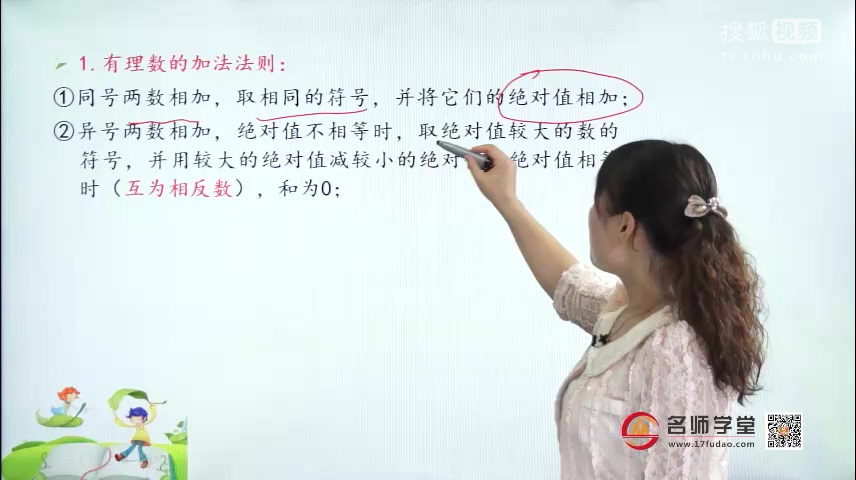 搜狐视频
tv.sohu.com
1.有理数的加法法则:
①同号两数相加，取相同的符号，并将它们的绝对值相加;
②异号两数相加，绝对值不相等时，取绝对值较大的数的
符号，并用较大的绝对值减较小的绝对 绝对值相
时（互为相反数），和为0;
名师学堂
www.17fudao.com